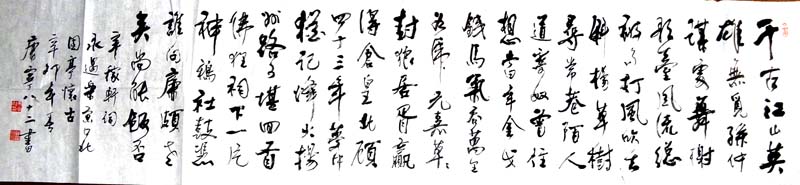 千古江山英
雄無覓孫仲
謀處舞榭
歌臺風流總
被雨打風吹去
斜陽草樹
尋常巷陌人
道寄奴曾住
想當年金戈
鐵馬氣吞萬里
如虎元嘉草草
封狼居胥贏
得倉皇北顧
四十三年望中
猶記烽火揚
州路可堪回首
佛狸祠下一片
神鴉社鼓憑
誰問廉頗老
矣尚能飯否
辛稼軒詞
永遇樂京口北
固亭懷古
辛卯年春
唐寧八十二書